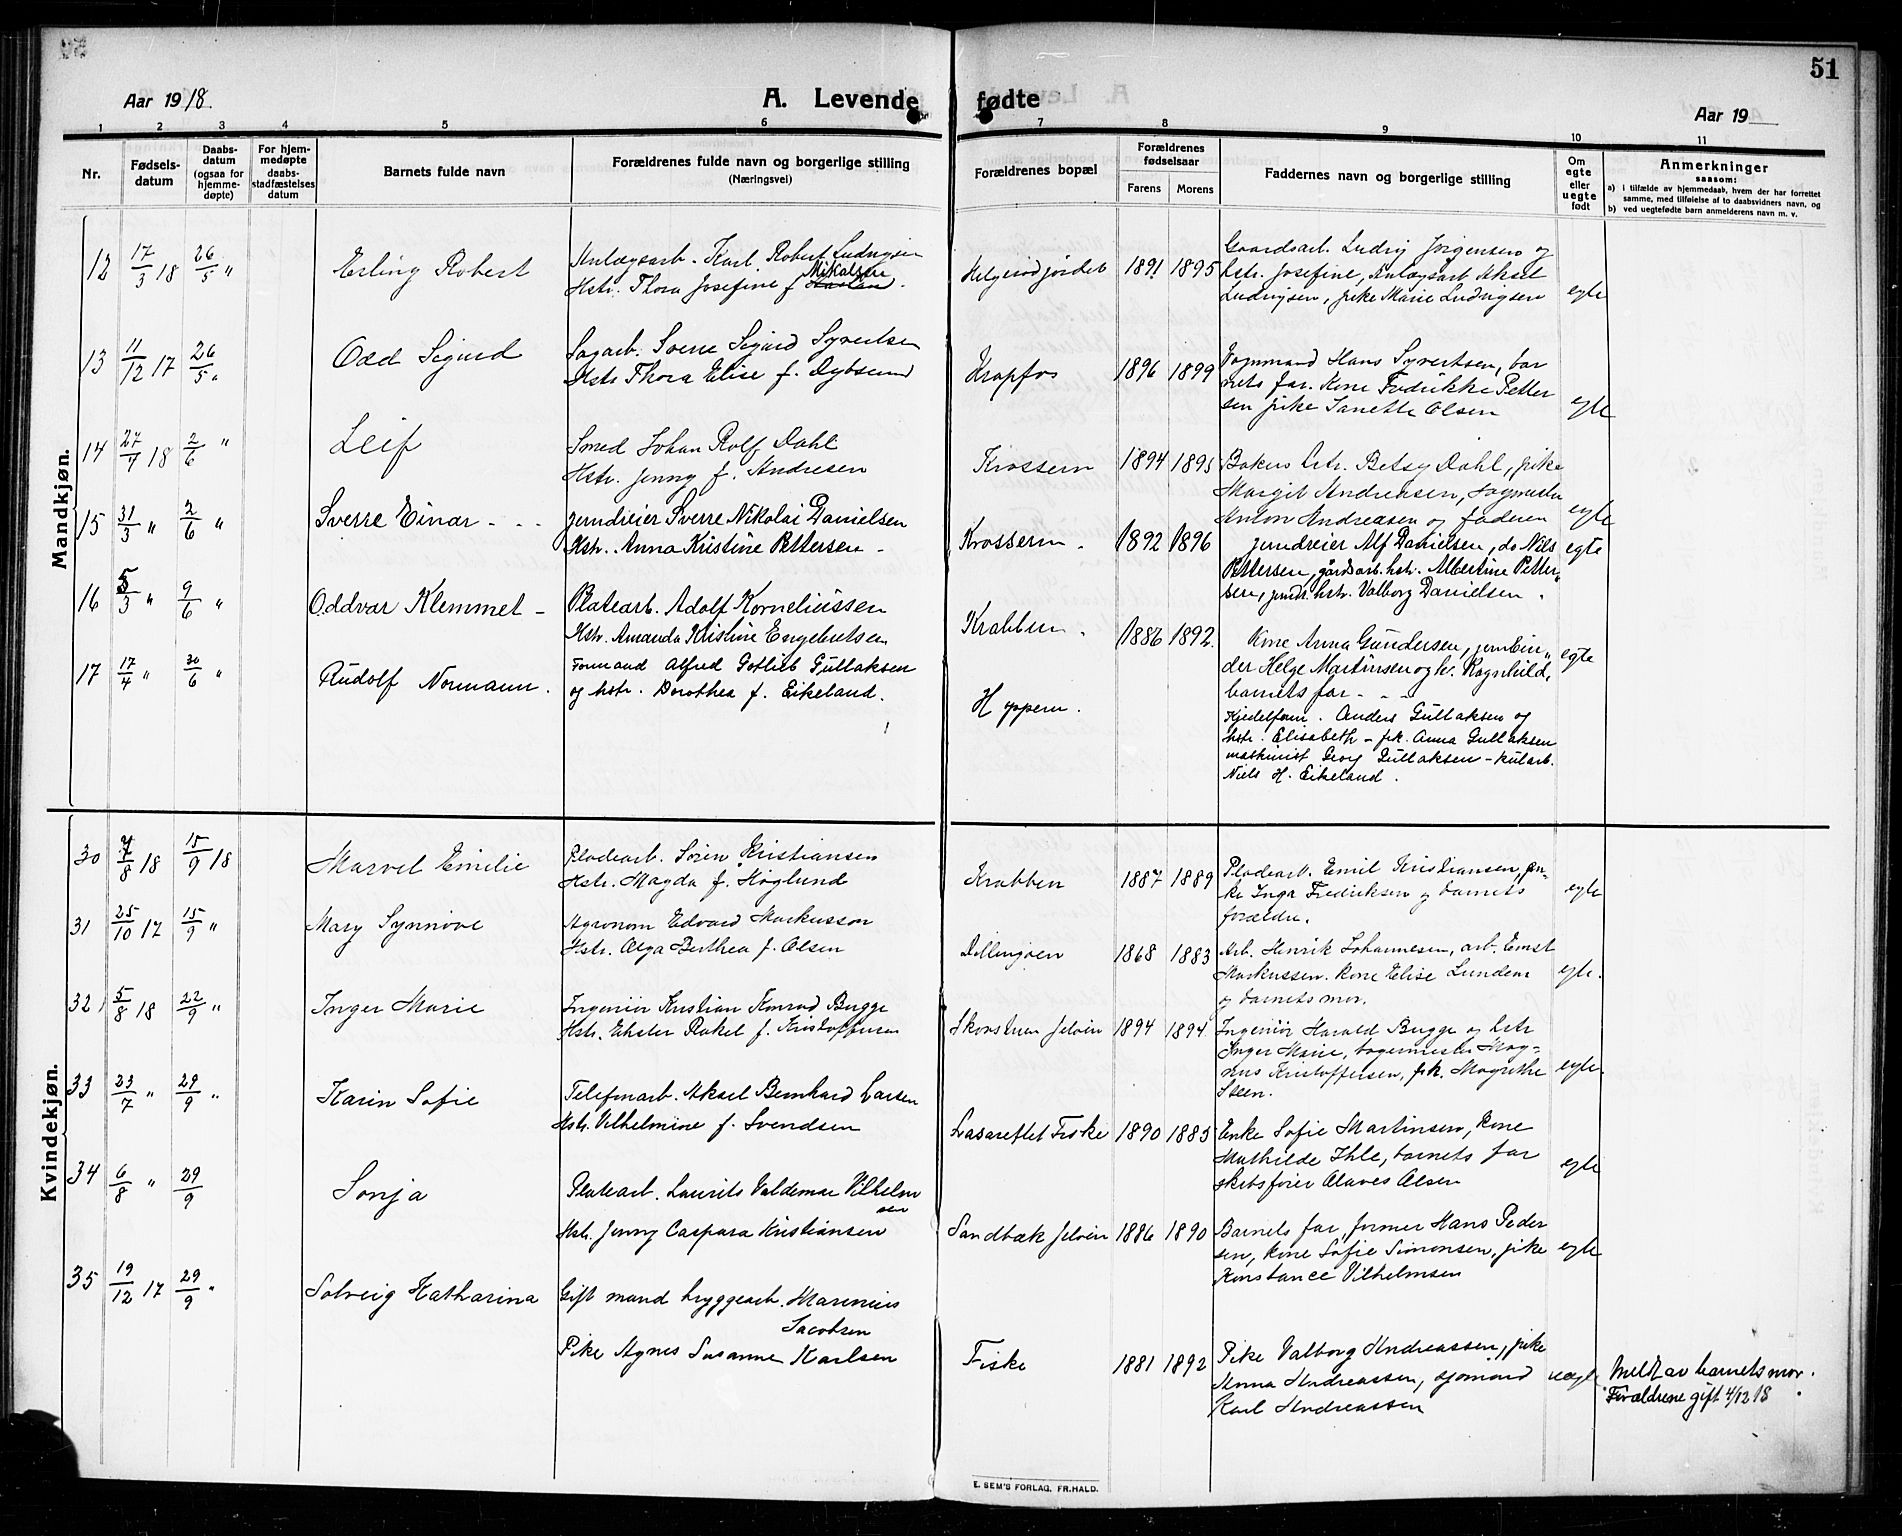 51
Aar 1918
A. Levende fødte
Aar 19
1 2 3 4 5 6 7 8 9 10 11
Nr.
Fødsels-
datum
Daabs-
datum
(ogsaa for
hjemme-
døpte)
For hjem-
medøpte
daabs-
stadfæstelses
datum
Barnets fulde navn
Forældrenes fulde navn og borgerlige stilling
(Næringsvei)
Forældrenes bopæl
Forældrenes
fødselsaar
Farens Morens
Faddernes navn og borgerlige stilling
Om
egte
eller
uegte
født
Anmerkninger
saasom:
a) i tilfælde av hjemmedaab, hvem der har forrettet
samme, med tilføielse af to daabsvidners navn, og
b) ved uegtefødte barn anmelderens navn m. v.
Mandkjøn.
12 17/3 18 26/5 " Erling Robert
Anlægsarb. Karl Robert Ludvigsen
Mikalsen
Hstr. Thora Josefine f.
Helgerødjordet 1891 1895
Gaardsarb. Ludvig Jørgensen og
hstr. Josefine, Anlægsarb. Aksel
Ludvigsen, pike Marie Ludvigsen egte
13 11/12 17 26/5 " Odd Sigurd
Sagarb. Sverre Sigurd Syvertsen
Hstr. Thora Elise f. Dybsund
Krapfos 1896 1899
Vognmand Hans Syvertsen, bar
nets far. Kone Fredrikke Petter
sen pike Janette Olsen egte
14 27/4 18 2/6 " Leif
Smed Johan Rolf Dahl
Hstr. Jenny f. Andresen
Krossern 1894 1895
Bakers hstr. Betsy Dahl, pike
Margit Andreasen, sagmester
Anton Andreasen og faderen egte
15 31/3 " 2/6 " Sverre Einar - - -
jerndreier Sverre Nikolai Danielsen
Hstr. Anna Kristine Pettersen -
Krossern. 1892 1896
jerndreier Alf Danielsen, do Nils egte
Pettersen, gårdsarb. hstr. Albertine Petter"
sen, jerndr. hstr. Valborg Danielsen.
16 5/3 " 9/6 " Oddvar Klemmet -
Platearb. Adolf Korneliussen
Hstr. Amanda Kristine Engebretsen
Krabben. 1886 1892.
Kone Anna Gundersen, jernbin"
der Helge Martinsen og h. Ragnhild, egte
barnets far - - -
17 17/4 " 30/6 " Rudolf Normann.
Formand Alfred Gotlieb Gullaksen
og hstr. Dorothea f. Eikeland.
Hoppern.
Kjedelform. Anders Gullaksen og
hstr. Elisabeth - frk. Anna Gullaksen
maskinist Georg Gullaksen - kularb.
Niels H. Eikeland.
Kvindekjøn.
30 7/8 18 15/9 18 Marvel Emilie
Pladearb. Søren Kristiansen
Hstr. Magda f. Høglund
Krabben 1887 1889
Pladearb. Emil Kristiansen, en-
ke Inga Fredriksen og barnets
forældre. egte
31 25/10 17 15/9 " Mary Synnøve
Agronom Edvard Markusson
Hstr. Olga Berthea f. Olsen
Dillingøen 1868 1883
Arb. Henrik Johannesen, arb. Ernst
Markussen. Kone Elise Lundem
og barnets mor. egte.
32 5/8 18 22/9 " Inger Marie
Ingeniør Kristian Konrad Bugge
Hstr. Ester Rakel f. Kristoffersen
Jeløen 1894 1894
Ingeniør Harald Bugge og hstr
Inger Marie, bagermester Mag-
nus Kristoffersen, frk. Magrethe
Steen. egte.
33 23/7 " 29/9 " Karin Sofie
Telefonarb. Aksel Bernhard Larsen
Hstr. Vilhelmine f. Svendsen
Lasarettet Fiske 1890 1885
Enke Sofie Martinsen, Kone
Mathilde Ihle, barnets far
skibsfører Olaves Olsen egte
34 6/8 " 29/9 Sonja
Platearb. Laurits Valdemar Vilhelm
sen
Hstr. Jenny Caspara Kristiansen
Sandbæk Jeløen 1886 1890
Barnets far, former Hans Peder
sen, kone Sofie Simonsen, pike
Konstance Vilhelmsen egte
35 19/12 17 29/9 " Solveig Katharina
Gift mand bryggearb. Marinius
Jacobsen
Pike Agnes Susanne Karlsen
Fiske 1881 1892
Pike Valborg Andreassen, pike
Anna Andreassen, sjømand
Karl Andreassen uegte
Meldt av barnets mor.
Forældrene gift 4/12 18
E. SEM'S FORLAG, FR.HALD.